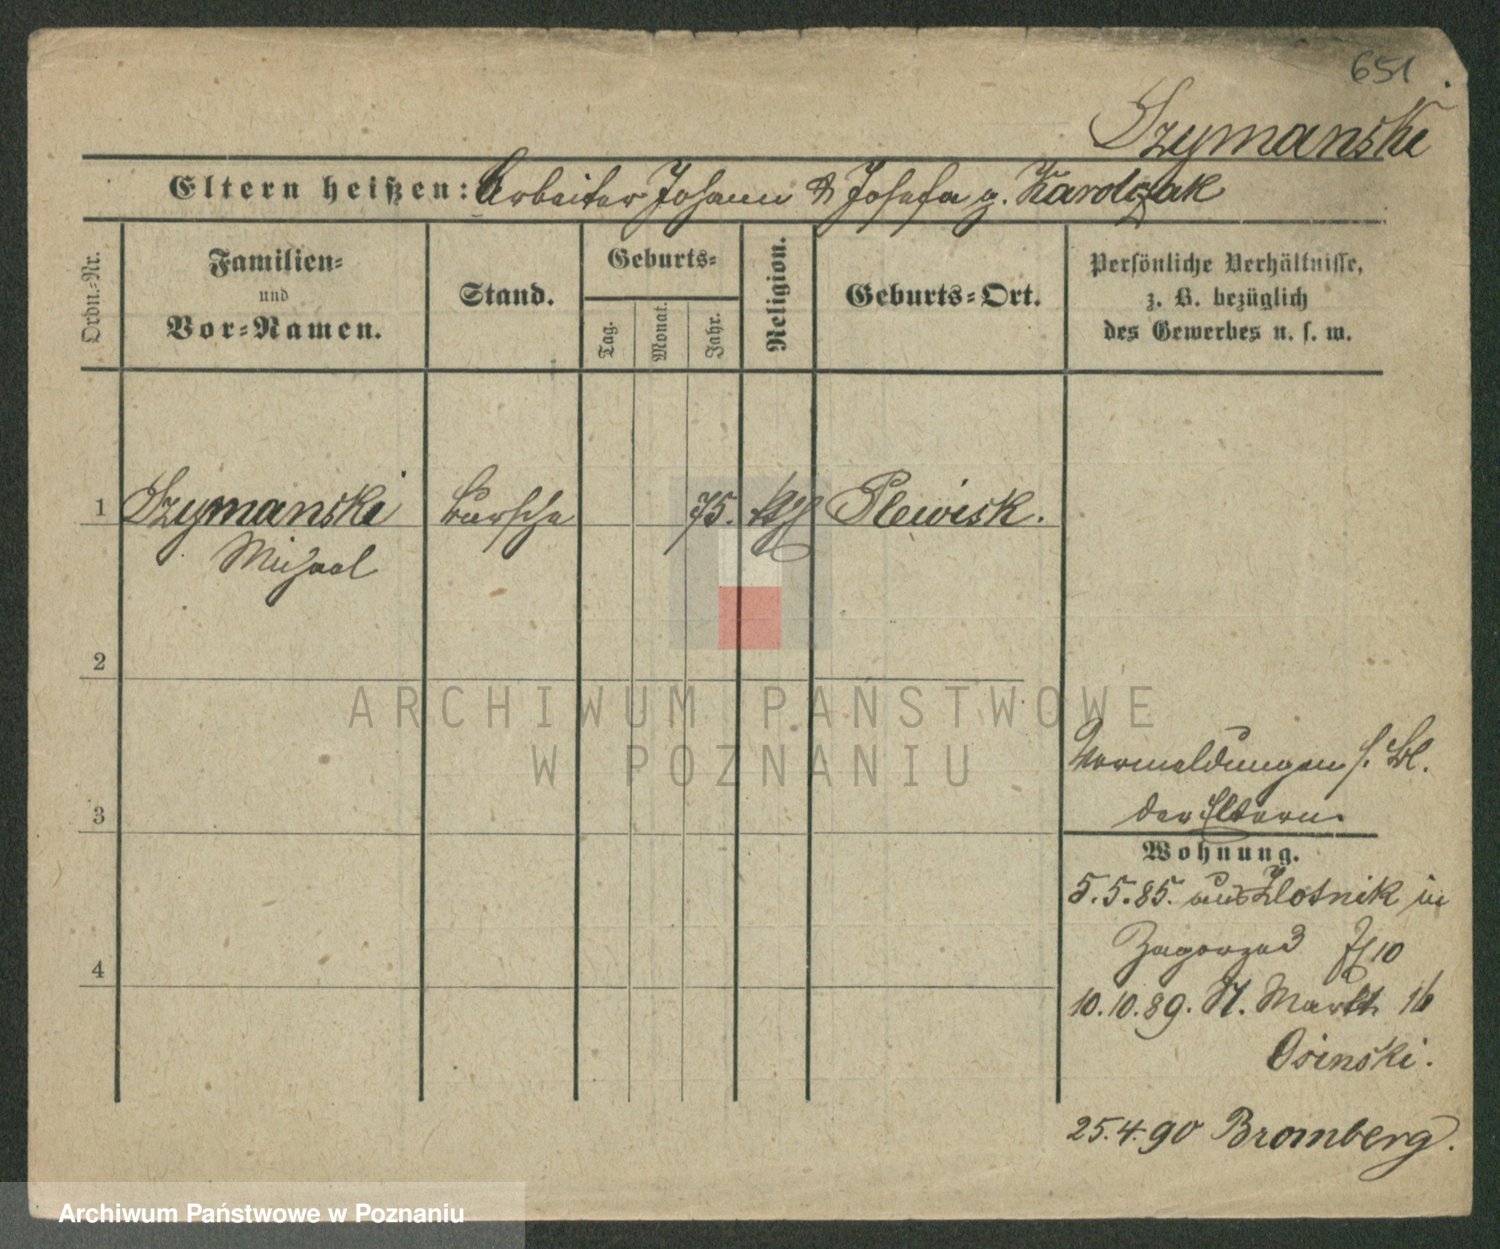 651
Szymanski
Eltern heißen: Arbeiter Johann & Josefa g. Karolczak
Ordn.-Nr.
Familien-
und
Vor-Namen.
Stand.
Geburts-
Tag.
Monat.
Jahr.
Religion.
Geburts-Ort.
Persönliche Verhältnisse,
z. B. bezüglich
des Gewerbes u. s. w.
1 Szymanski Bursche 75. kth Plewisk.
Michael
2
ARCHIWUM PAŃSTWOWE
W POZNANIU
Vormeldungen s. Bl.
3 der Eltern.
Wohnung.
5.5.85. aus Zlotnik in
Zagorze 3
4
10.10.89. A. Markt 16
Osinski.
25.4.90 Bromberg.
Archiwum Państwowe w Poznaniu